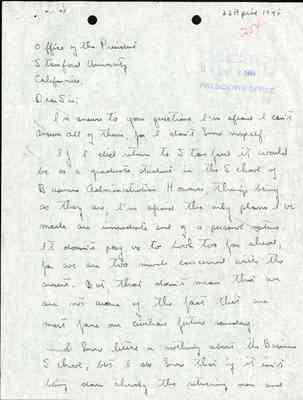 22 April 1945
254
PRESIDENT'S OFFICE
Office of the President
Stanford University
California.
Dear Sir;
In answer to your questions I'm afraid I can't
answer all of them for I don't know myself.
If I did return to Stanford it would
be as a graduate student in the School of
Business Administration. However, things being
as they are, I'm afraid the only plans I've
made are immediate and of a personal nature.
It doesn't pay us to look too far ahead,
for we are too much concerned with the
present. But, that doesn't mean that we
are not aware of the fact that we
must face our civilian future someday.
I know little or nothing about the Business
School, but I do know that if it isn't
being done already the returning men and